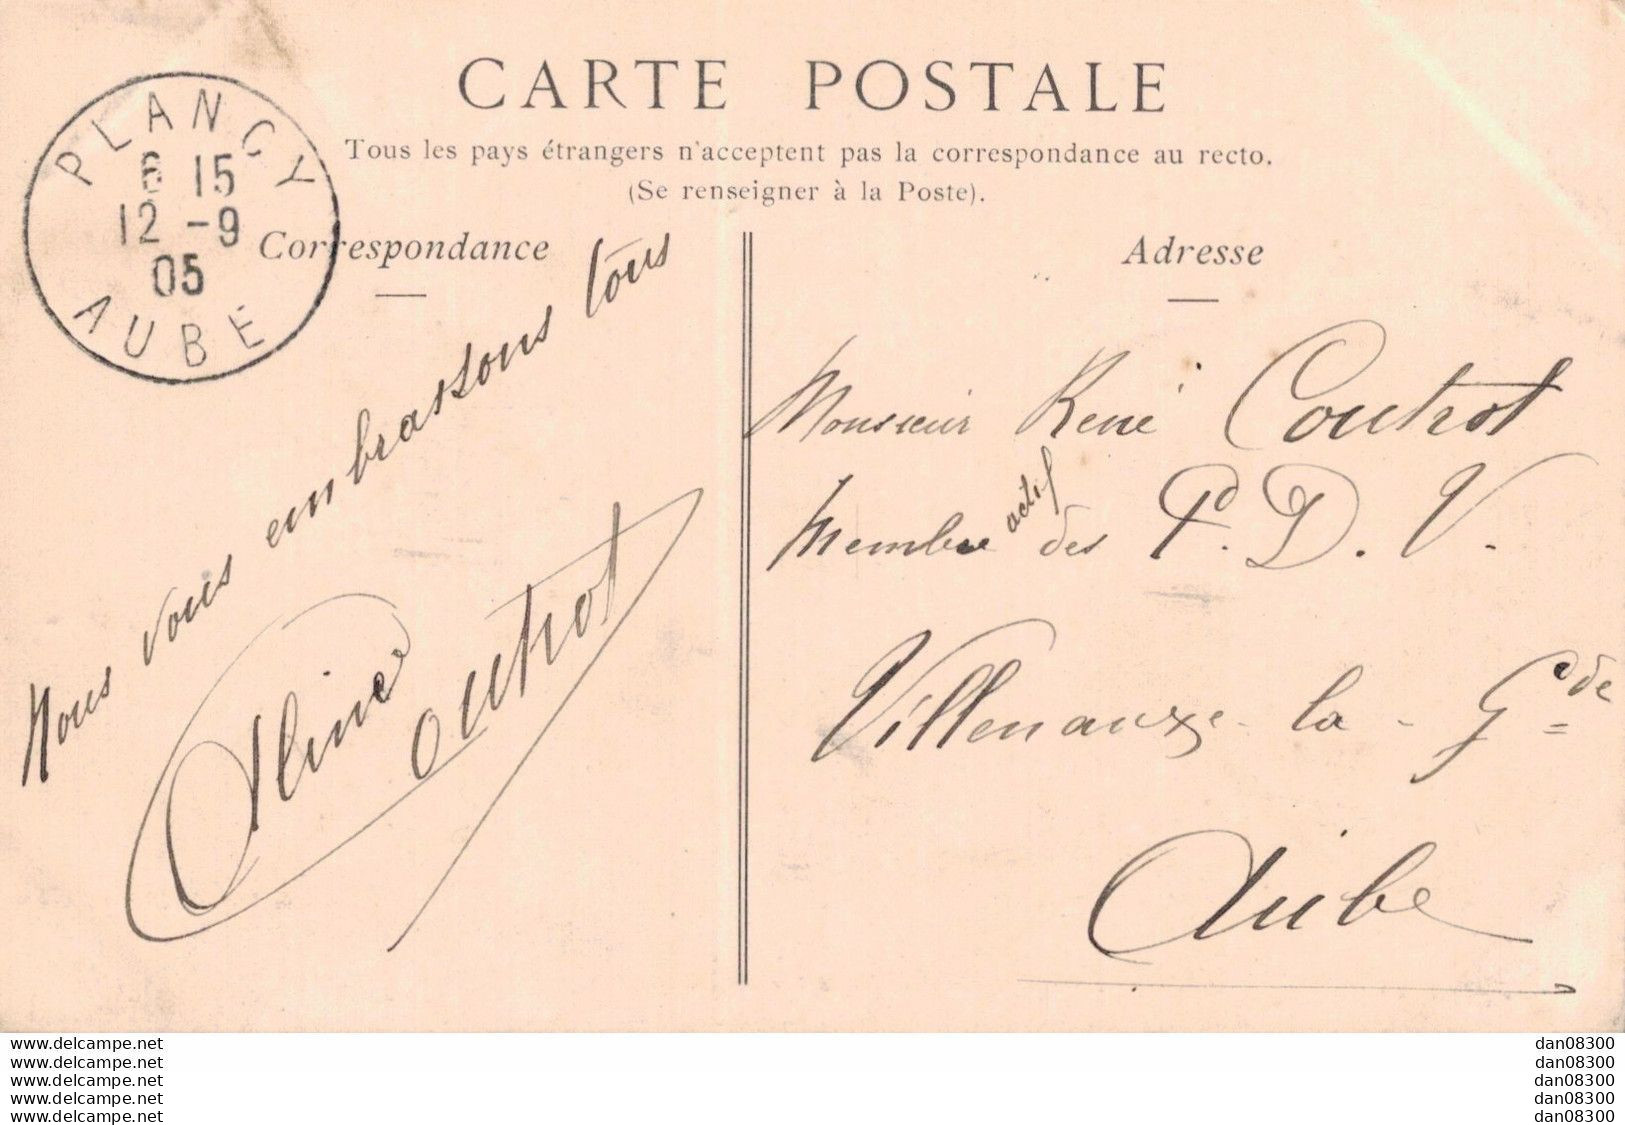 CARTE POSTALE
Tous les pays étrangers n'acceptent pas la correspondance au recto.
(Se renseigner à la Poste).
PLANCY
6 15
12 -9
05
AUBE
Correspondance
Nous vous embrassons tous
Aline Coutrot
Adresse
Monsieur René Coutrot
Membre actif des P. D. V.
Villenauxe-la-Gde
Aube
www.delcampe.net dan08300
www.delcampe.net dan08300
www.delcampe.net dan08300
www.delcampe.net dan08300
www.delcampe.net dan08300